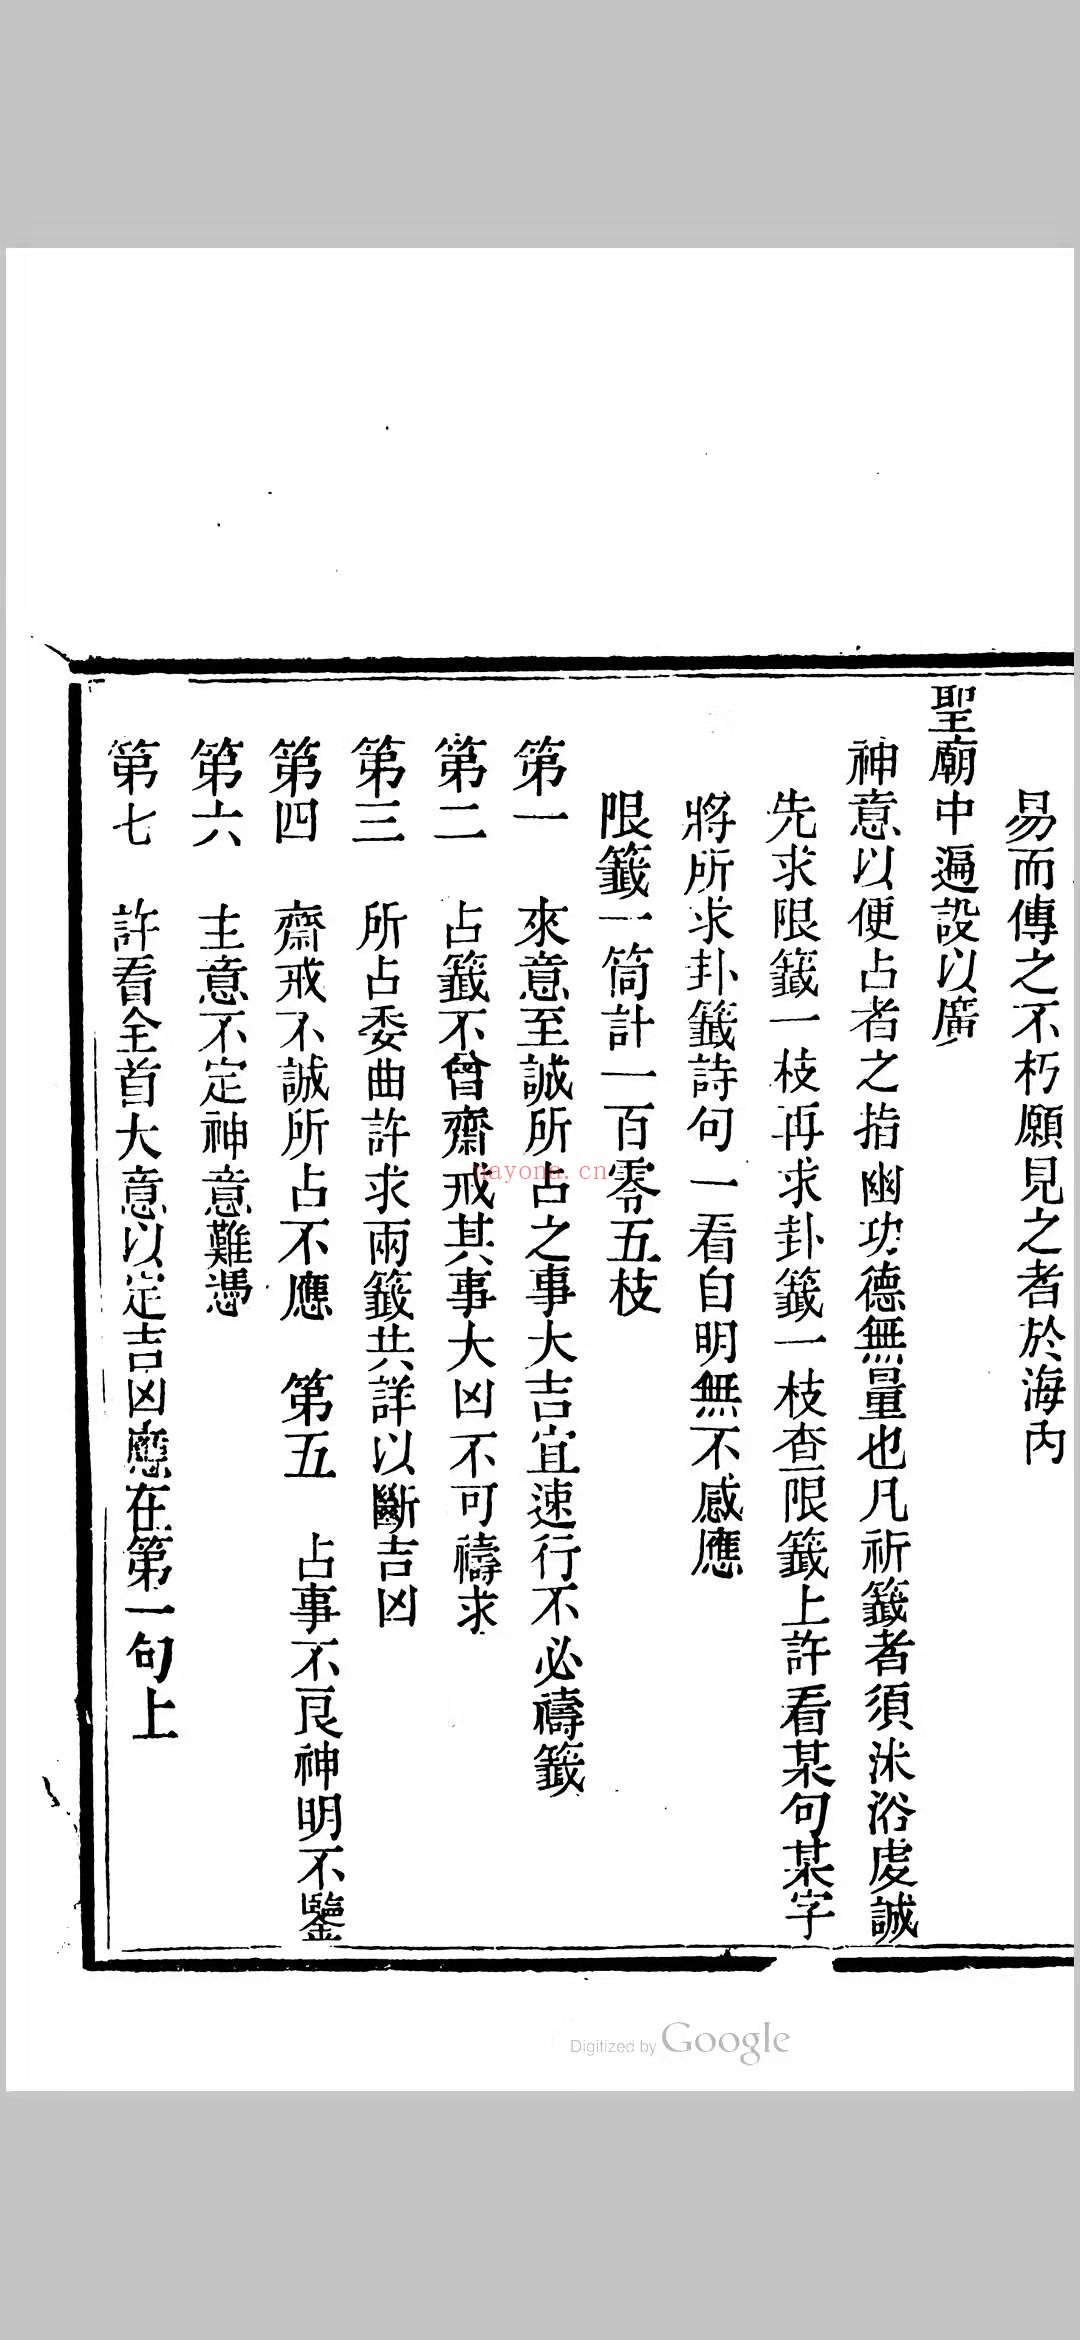 易而傳之不朽願見之者於海内
聖廟中遍設以廣
神意以便占者之指幽功德無量也凡祈籤者須沐浴虔誠
先求限籤一枝再求卦籤一枝查限籤上許看某句某字
將所求卦籤詩句一看自明無不感應
限籤一筒計一百零五枝
第一　來意至誠所占之事大吉宜速行不必禱籤
第二　占籤不曾齋戒其事大凶不可禱求
第三　所占委曲許求兩籤共詳以斷吉凶
第四　齋戒不誠所占不應　第五　占事不良神明不鑒
第六　主意不定神意難憑
第七　許看全首大意以定吉凶應在第一句上
nayona.cn
Digitized by Google